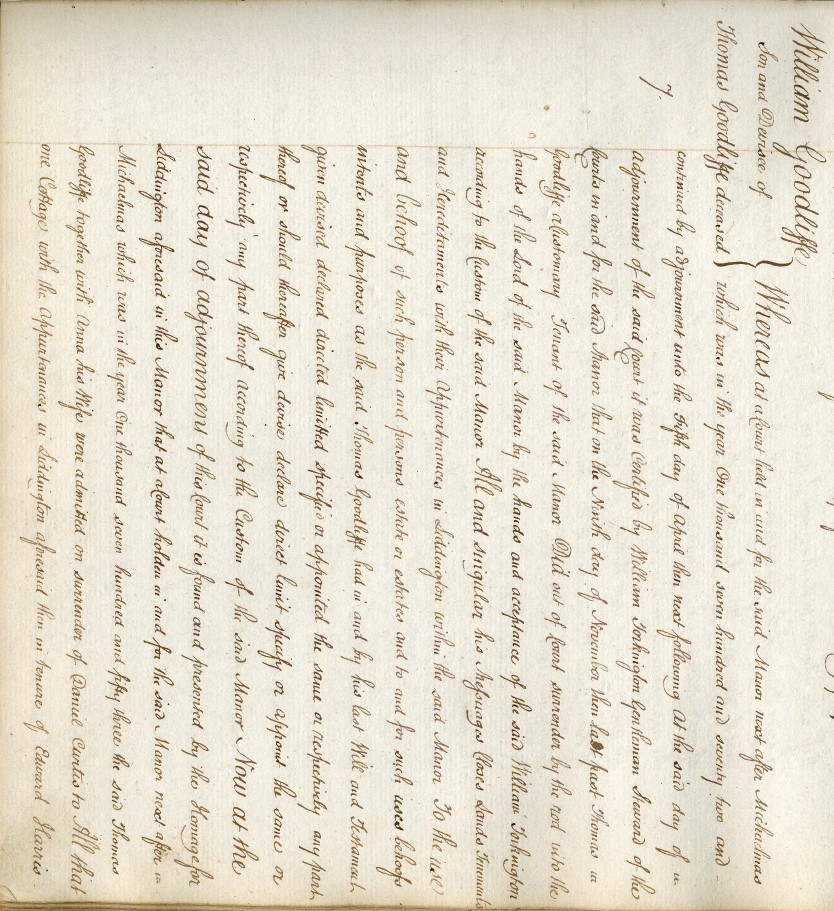 William Goodliffe
Son and Devisee of
Thomas Goodliffe deceased
7.
Whereas at a Court held in and for the said Manor next after Michaelmas
which was in the year One thousand seven hundred and seventy two and
continued by adjournment unto the Fifth day of April then next following At the said day of
adjournment of the said Court it was Certified by William Torkington Gentleman Steward of the
Courts in and for the said Manor that on the Ninth day of November then last past Thomas
Goodliffe a Customary Tenant of the said Manor Did out of Court surrender by the rod into the
hands of the Lord of the said Manor by the hands and acceptance of the said William Torkington
according to the Custom of the said Manor All and singular his Messuages Closes Lands Tenements
and Hereditaments with their Appurtenances in Liddington within the said Manor To the use
and behoof of such person and persons estate or estates and to and for such uses behoofs
intents and purposes as the said Thomas Goodliffe had in and by his last Will and Testament
given devised declared directed limitted specific or appointed the same or respectively any part
thereof or should thereafter give devise declare direct limit specify or appoint the same or
respectively any part thereof according to the Custom of the said Manor Now at the
said day of adjournment of this Court it is found and presented by the Homage for
Liddington aforesaid in this Manor that at a Court holden in and for the said Manor next after
Michaelmas which was in the year One thousand seven hundred and fifty three the said Thomas
Goodliffe together with Anna his Wife were admitted on surrender of Daniel Curtis to All that
one Cottage with the Appurtenances in Liddington aforesaid then in tenure of Edward Harris